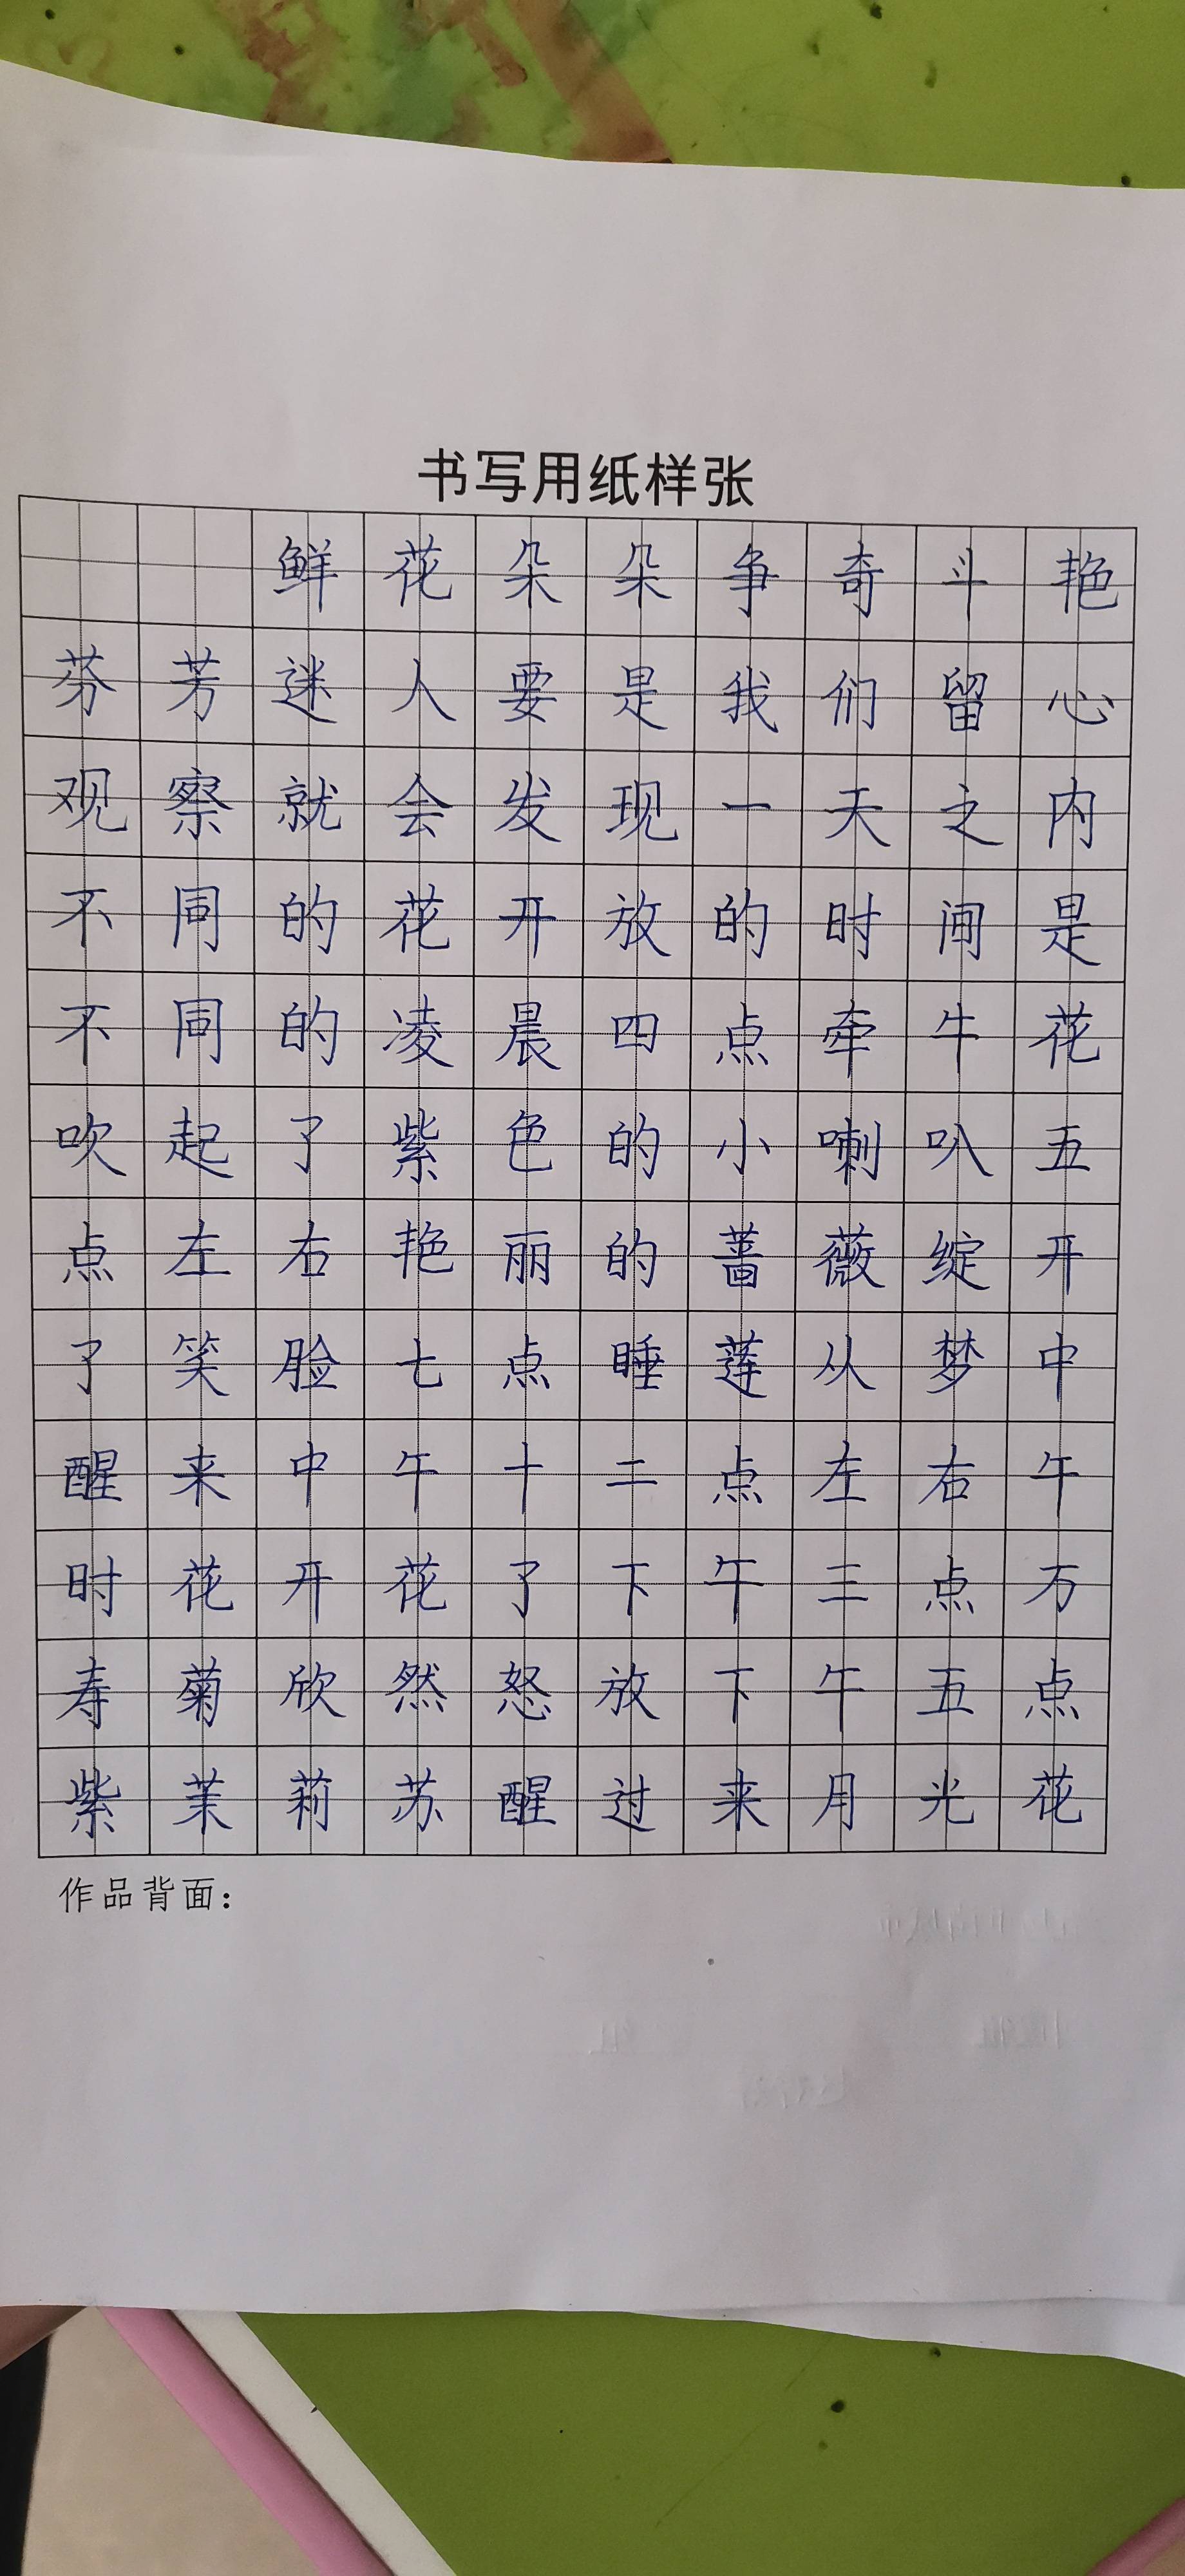 书写用纸样张
鲜花朵朵争奇斗艳
芬芳迷人要是我们留心
观察就会发现一天之内
不同的花开放的时间是
不同的凌晨四点牵牛花
吹起了紫色的小喇叭五
点左右艳丽的蔷薇绽开
了笑脸七点睡莲从梦中
醒来中午十二点左右午
时花开花了下午三点万
寿菊欣然怒放下午五点
紫茉莉苏醒过来月光花
作品背面：